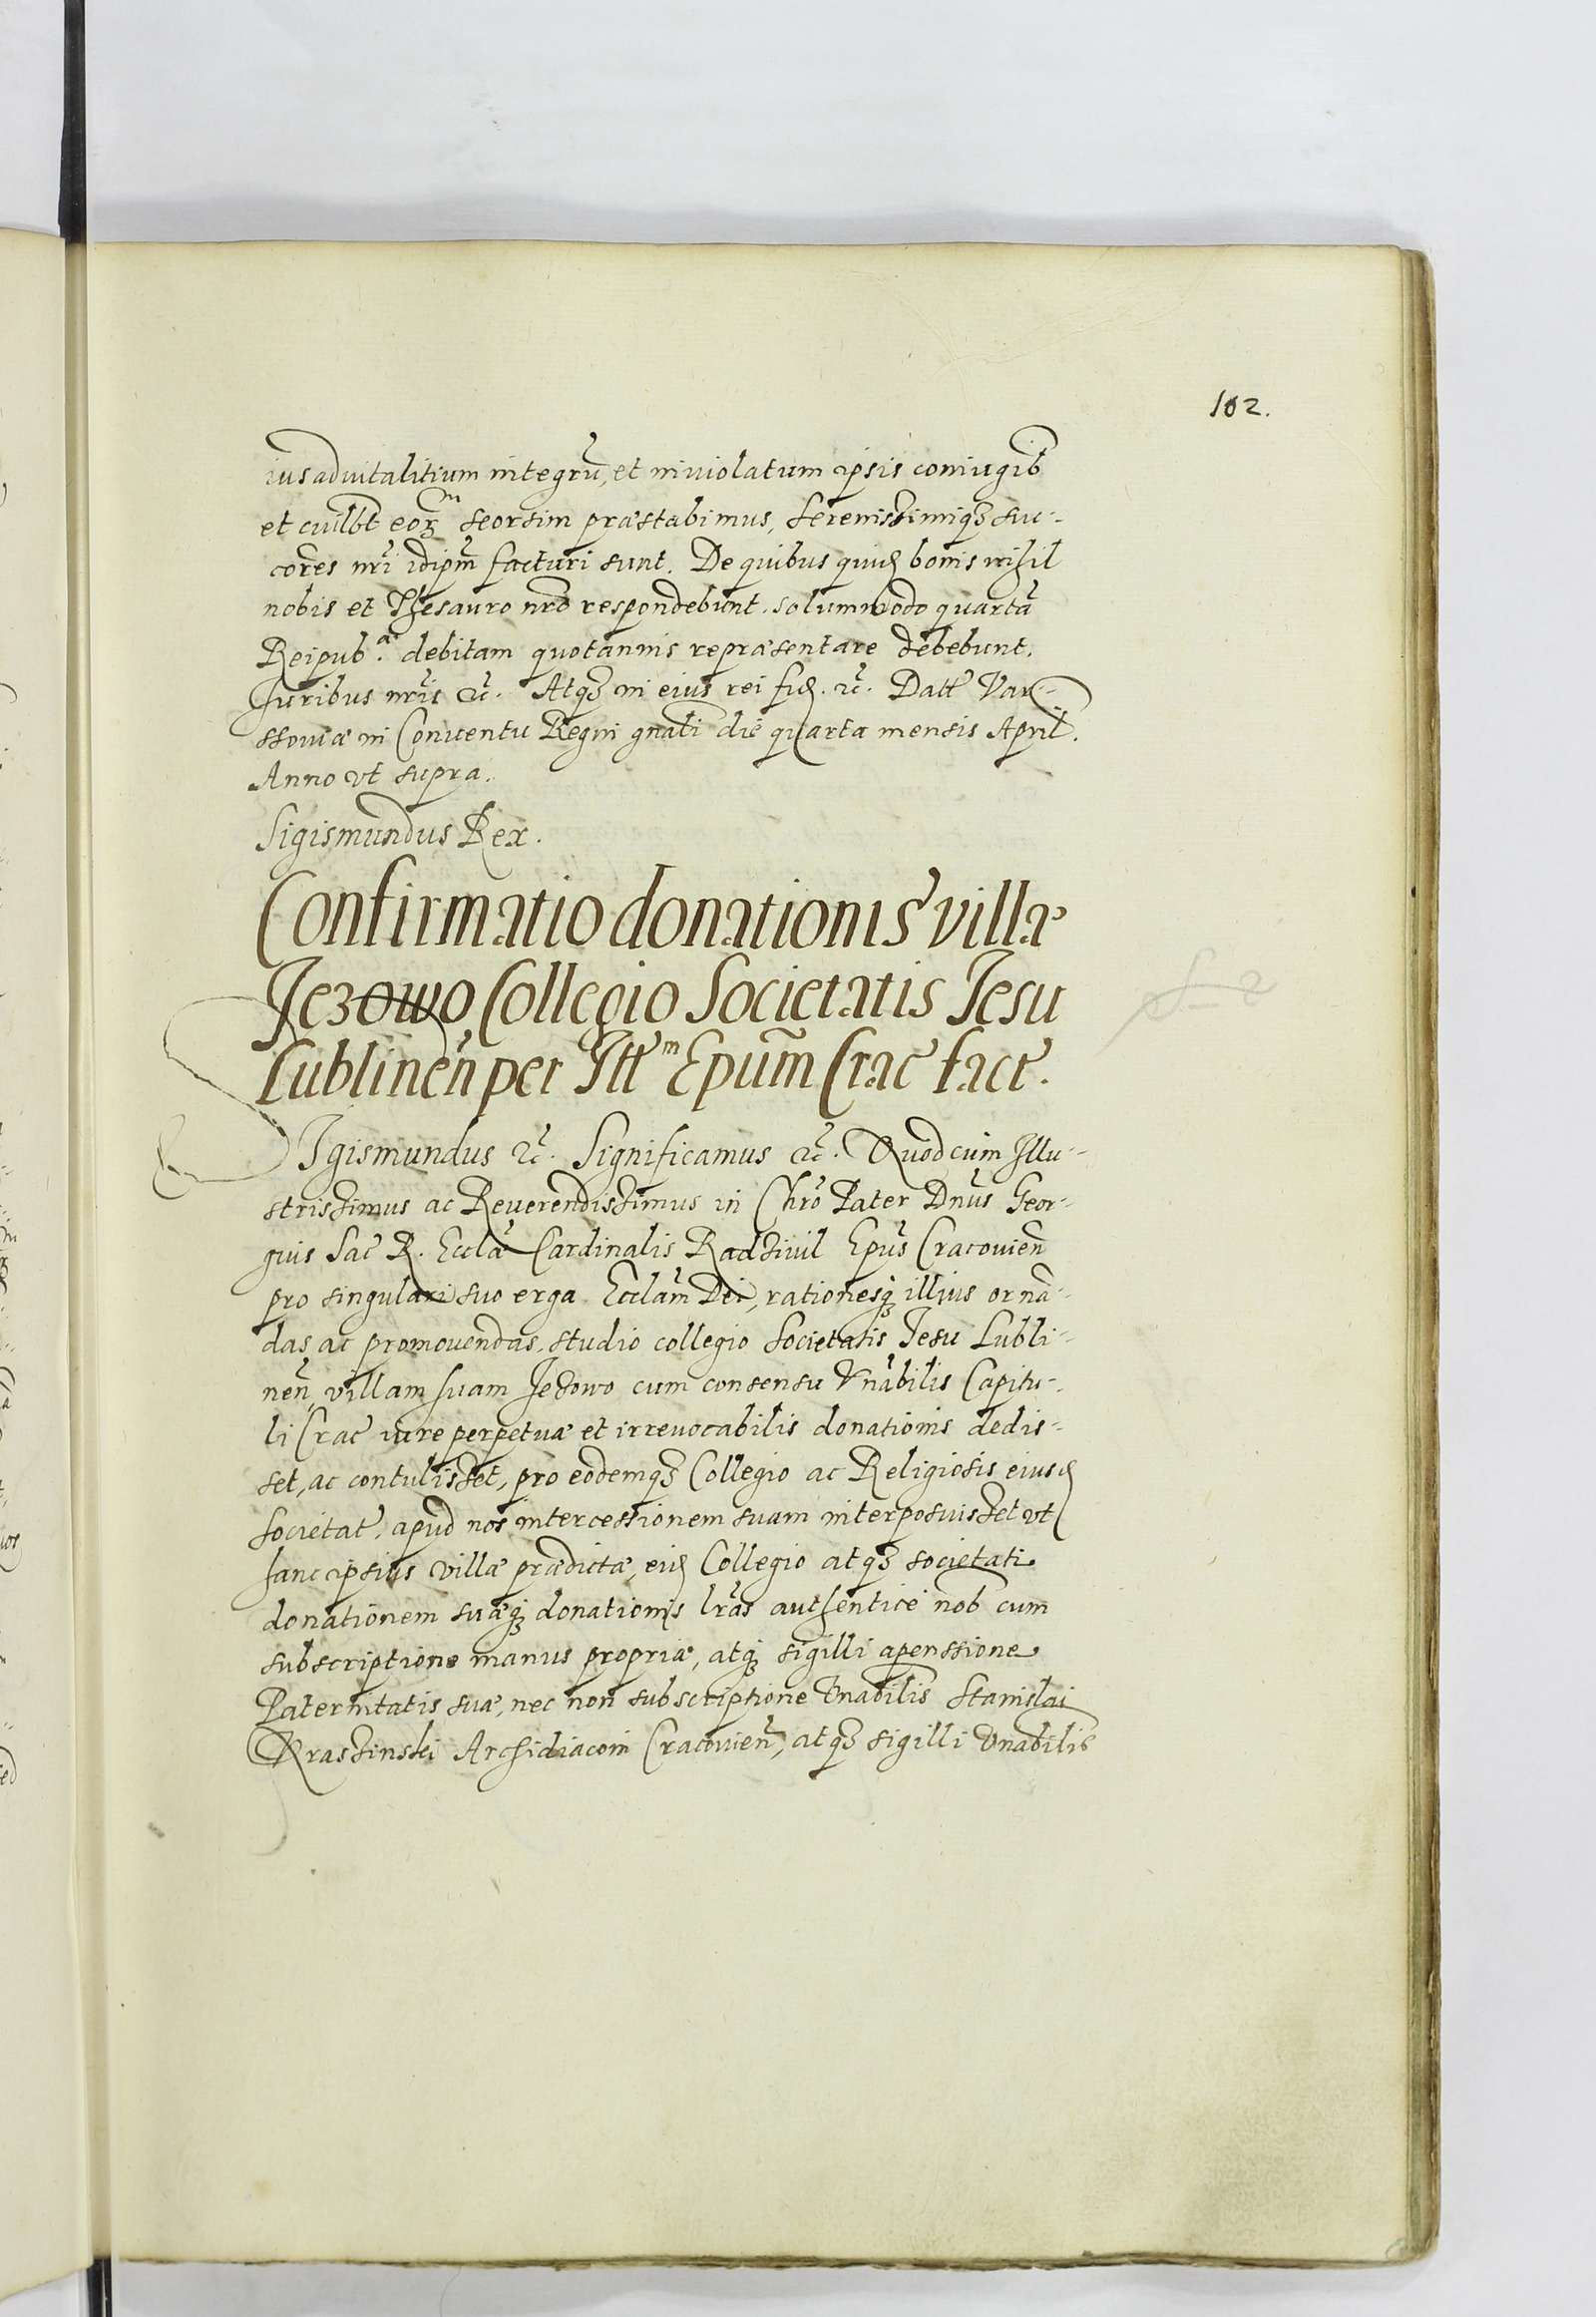 102.
ius aduitalitium integrũ, et inuiolatum ipsis coniugib
et cuilbt eorũ seorsim præstabimus, Serenissimiqȝ suc-
cores nr̃i idipm̃ facturi sunt. De quibus quidȩ bonis nihil
nobis et Thesauro nrõ respondebunt. solummodo quartã
Reipub.ᵃᵉ debitam quotannis repræsentare debebunt.
Juribus nr̃is &c̃. Atqȝ in eius rei fidȩ. &c̃. Datt Var-
ssouiæ in Conuentu Regni gnãli die quarta mensis April.
Anno vt supra.
Sigismundus Rex.
Confirmatio donationis villæ
Jezowo Collegio Societatis Jesu
Lublineñ per Illᵐ Epum̃ Crac̃ fact̃.
Igismundus &c̃. Significamus &c̃. Quod cum Illu-
strissimus ac Reuerendissimus in Chrõ Pater Dnũs Geor-
gius Sac̃ R. Ecclæ̃ Cardinalis Radziuil Epũs Cracouieñ
pro singulari suo erga Ecclãm Dei, rationesqȝ illius ornã-
das ac promouendas, studio collegio Societatis Jesu Lubli-
neñ, villam suam Jezowo cum consensu Vnãbilis Capitu-
li Crac̃ iure perpetuæ et irreuocabilis donationis dedis-
set, ac contulisset, pro eodemqȝ Collegio ac Religiosis eiusdȩ
Societat̃. apud nos intercessionem suam interposuisset vt
hanc ipsius villæ prædictæ, eidȩ Collegio atqȝ societati
donationem suæqȝ donationis lrãs authenticè nob cum
subscriptione manus propriæ, atqȝ sigilli apenssione
Paternitatis suæ, nec non subscriptione Vnabilis Stanislai
Kraszinski Archidiaconi Cracouieñ, atqȝ sigilli Vnabilis